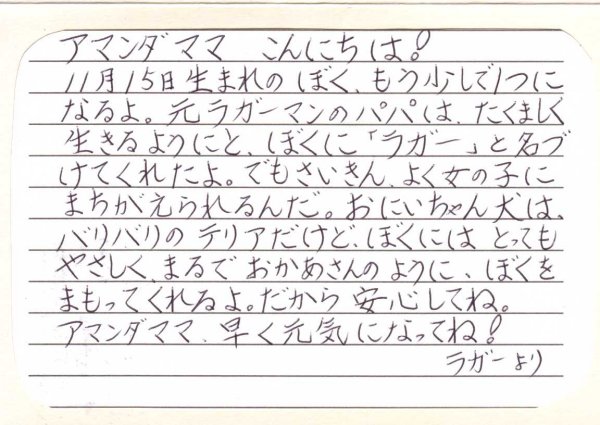 アマンダママ こんにちは!
11月15日生まれのぼく、もう少しで1つに
なるよ。元ラガーマンのパパは、たくましく
生きるようにと、ぼくに「ラガー」と名づ
けてくれたよ。でもさいきん、よく女の子に
まちがえられるんだ。おにいちゃん犬は、
バリバリのテリアだけど、ぼくには とっても
やさしく、まるで おかあさんのように、ぼくを
まもってくれるよ。だから 安心してね。
アマンダママ、早く元気になってね!
ラガーより